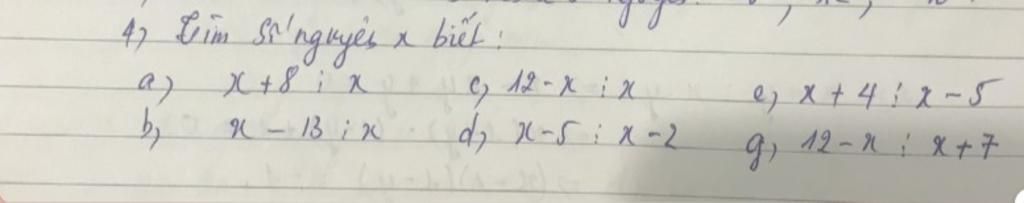 4, Tìm số nguyên x biết:
a, x + 8 ⋮ x c, 12 - x ⋮ x e, x + 4 ⋮ x - 5
b, x - 13 ⋮ x d, x - 5 ⋮ x - 2 g, 12 - x ⋮ x + 7